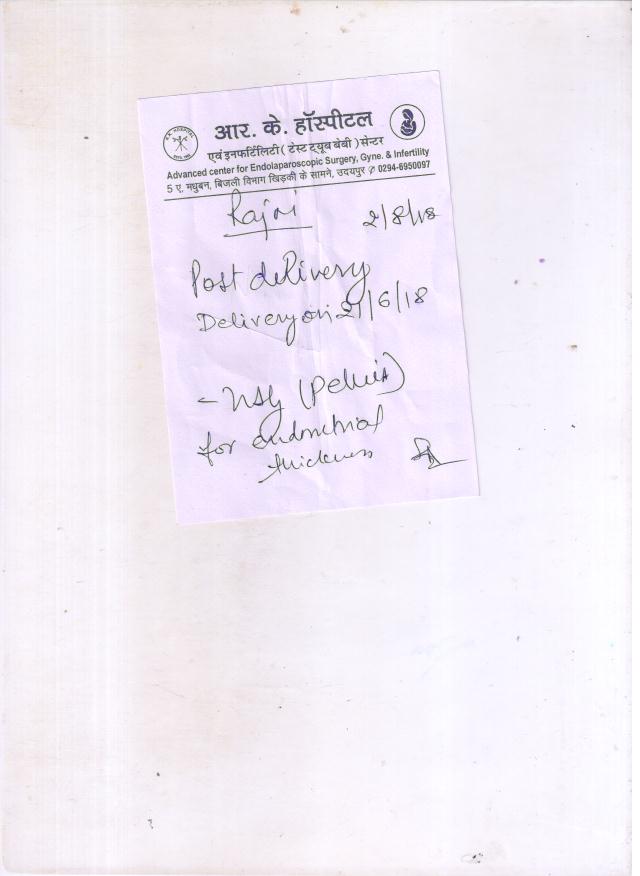 आर. के. हॉस्पीटल
एवं इनफर्टिलिटी ( टेस्ट ट्यूब बेबी ) सेन्टर
Advanced center for Endolaparoscopic Surgery, Gyne. & Infertility
5 ए, मधुबन, बिजली विभाग खिड़की के सामने, उदयपुर ✆ 0294-6950097
2/8/18
Post delivery
Delivery on 21/6/18
- USG (Pelvis)
for endometrial
thickness